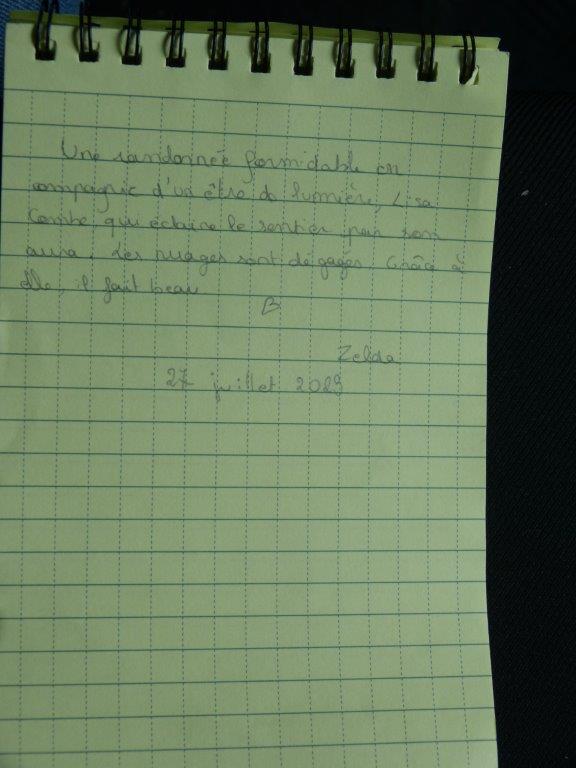 Une randonnée formidable en
compagnie d'un être de lumière, Lisa
Combe qui éclaire le sentier par son
aura. Les nuages sont dégagés. Grâce à
elle, il fait beau
B
Zelda
27 juillet 2023